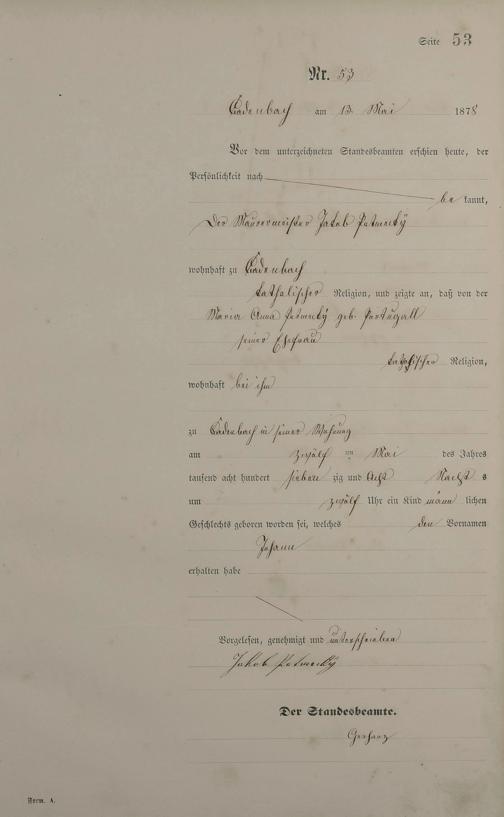 Seite 53
Nr. 53
Cadenbach am 13. Mai 1878
Vor dem unterzeichneten Standesbeamten erschien heute, der
Persönlichkeit nach
be kannt,
Der Maurermeister Jakob
wohnhaft zu Cadenbach
katholischer Religion, und zeigte an, daß von der
Maria Anna geb. Portugall
seiner Ehefrau
katholischer Religion,
wohnhaft bei ihm
zu Cadenbach in seiner Wohnung
am zwölf ten Mai des Jahres
tausend acht hundert sieben zig und Acht Nacht s
um zwölf Uhr ein Kind männ lichen
Geschlechts geboren worden sei, welches den Vornamen
Johann
erhalten habe
Vorgelesen, genehmigt und unterschrieben
Jakob
Der Standesbeamte.
Form. A.